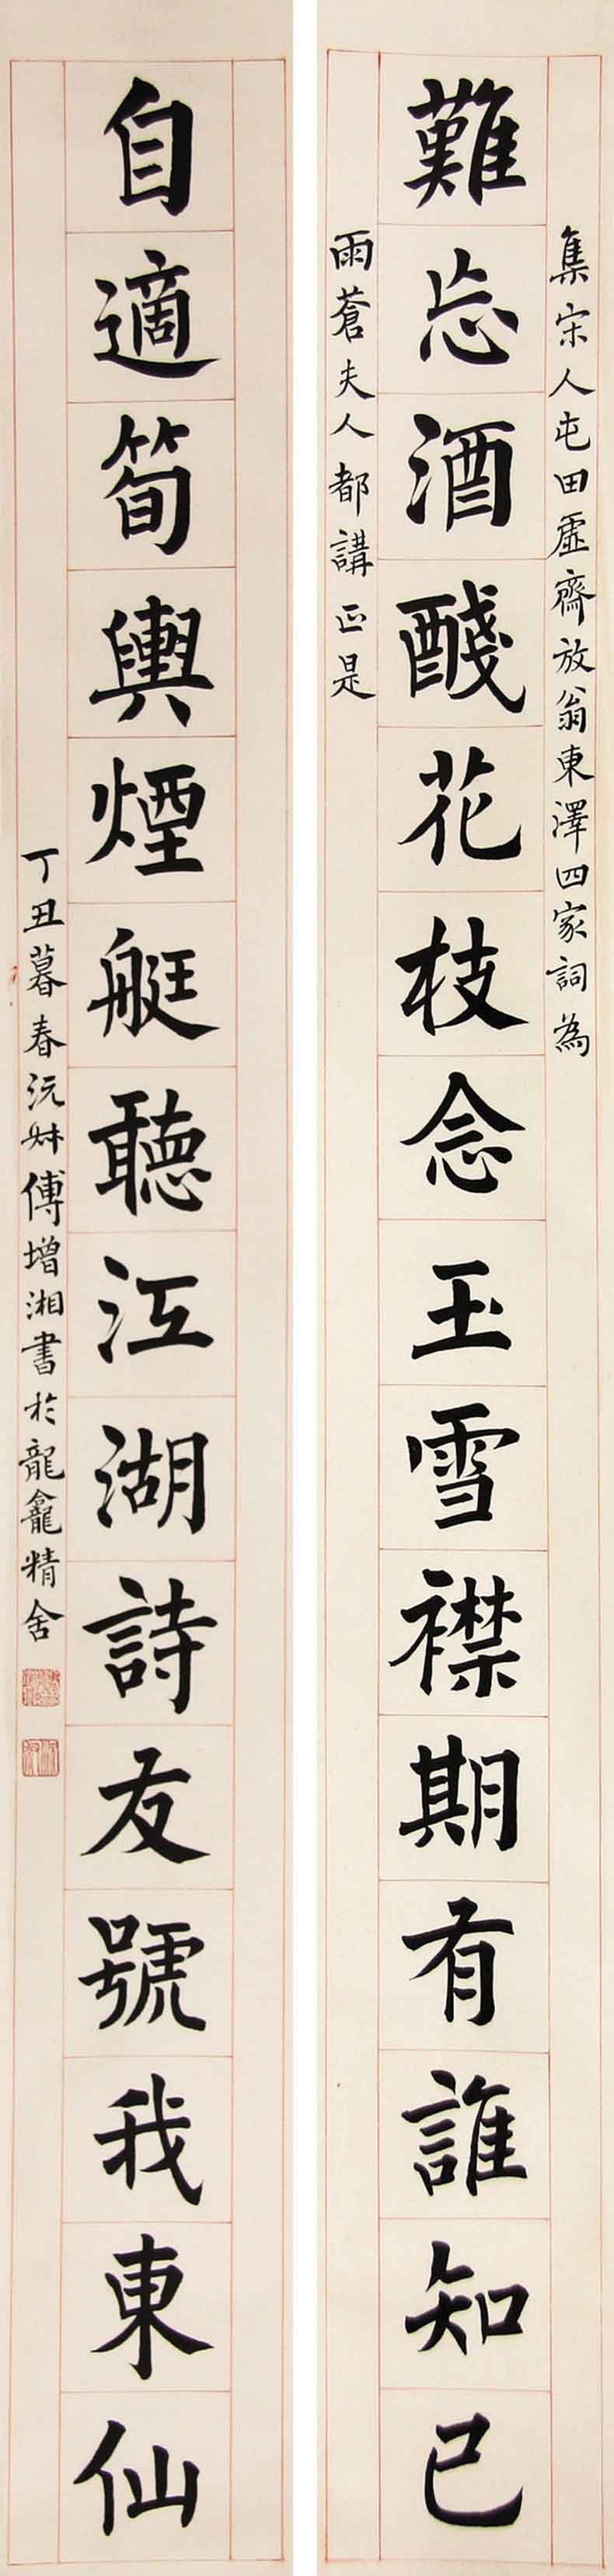 集宋人屯田虛齋放翁東澤四家詞為
難忘酒醆花枝念玉雪襟期有誰知己
雨蒼夫人都講正是
自適筍輿煙艇聽江湖詩友號我東仙
丁丑暮春沅叔傅增湘書於龍龕精舍